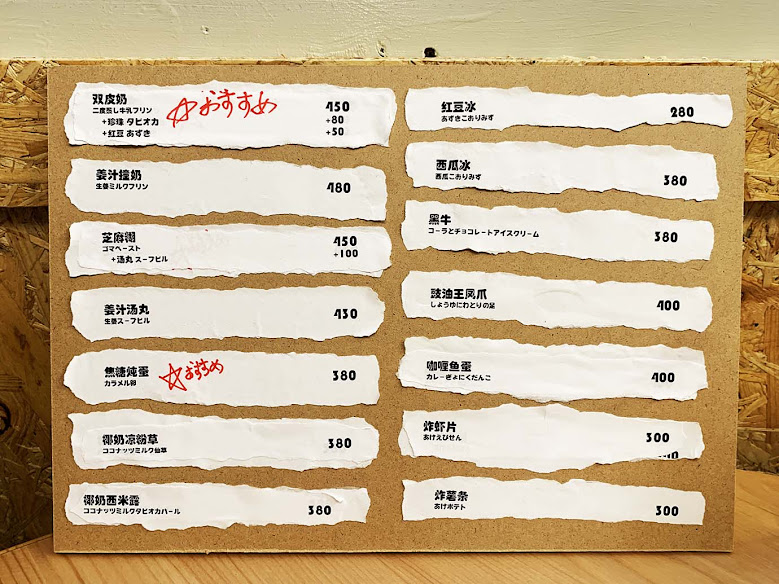 双皮奶 ☆おすすめ 450
二度蒸し牛乳プリン
+珍珠 タピオカ +80
+红豆 あずき +50
姜汁撞奶 480
生姜ミルクプリン
芝麻糊 450
ゴマペースト
+汤丸 スープピル +100
姜汁汤丸 430
生姜スープピル
焦糖炖蛋 ☆おすすめ 380
カラメル卵
椰奶凉粉草 380
ココナッツミルク仙草
椰奶西米露 380
ココナッツミルクタピオカパール
红豆冰 280
あずきこおりみず
西瓜冰 380
西瓜こおりみず
黑牛 380
コーラとチョコレートアイスクリーム
豉油王凤爪 400
しょうゆにわとりの足
咖喱鱼蛋 400
カレーぎょにくだんご
炸虾片 300
あげえびせん
炸薯条 300
あげポテト